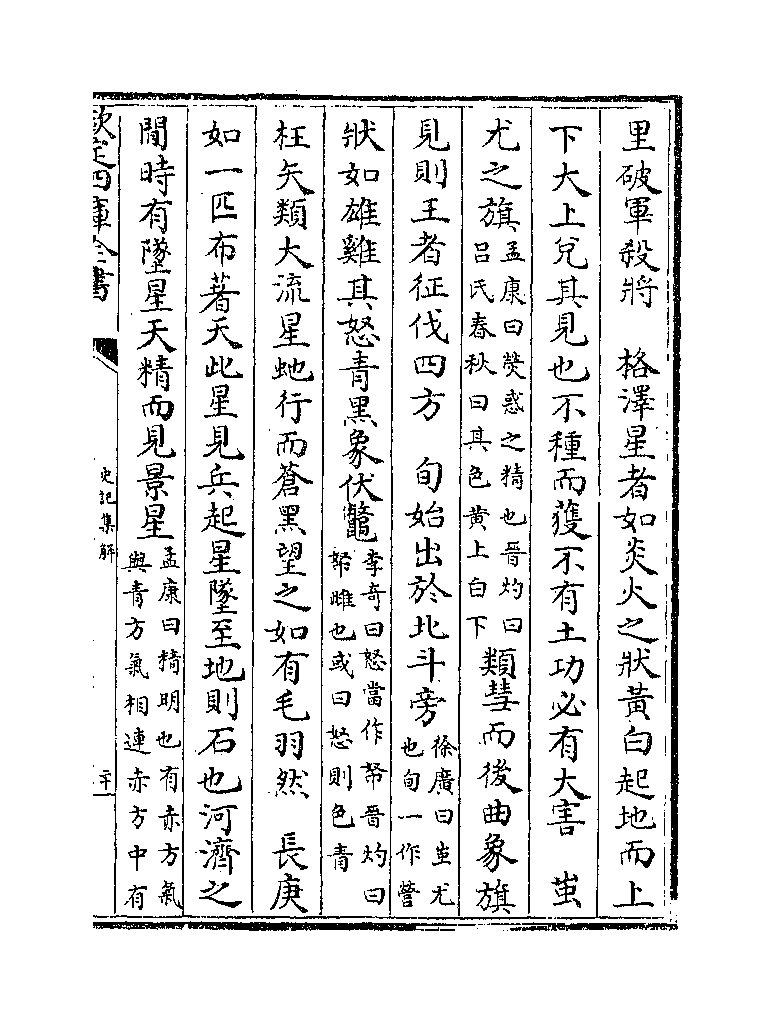 里破軍殺將　格澤星者如炎火之狀黃白起地而上
下大上兌其見也不種而獲不有土功必有大害　蚩
尤之旗孟康曰熒惑之精也晉灼曰
呂氏春秋曰其色黃上白下類彗而後曲象旗
見則王者征伐四方　旬始出於北斗旁徐廣曰蚩尤
也旬一作營
狀如雄雞其怒青黑象伏鼈李奇曰怒當作帑晉灼曰
帑雌也或曰怒則色青
枉矢類大流星虵行而蒼黑望之如有毛羽然　長庚
如一匹布著天此星見兵起星墜至地則石也河濟之
間時有墜星天精而見景星孟康曰精明也有赤方氣
與青方氣相連赤方中有
欽定四庫全書
史記集解
二十一